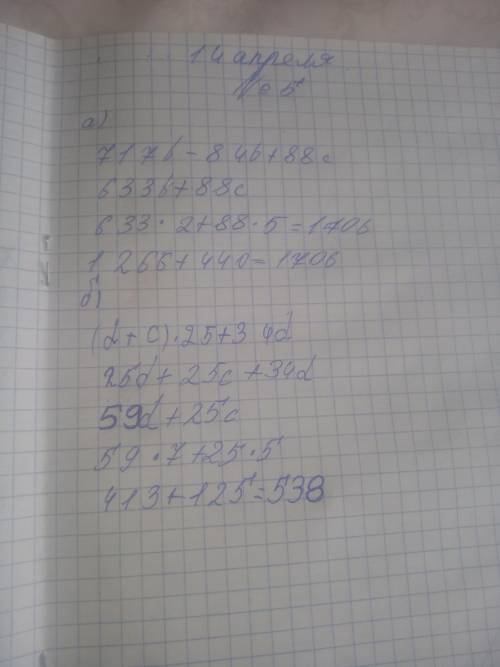 14 апреля
№ 5
а)
717b - 84b + 88c
633b + 88c
633 · 2 + 88 · 5 = 1706
1 266 + 440 = 1706
б)
(d + c) · 25 + 34d
25d + 25c + 34d
59d + 25c
59 · 7 + 25 · 5
413 + 125 = 538